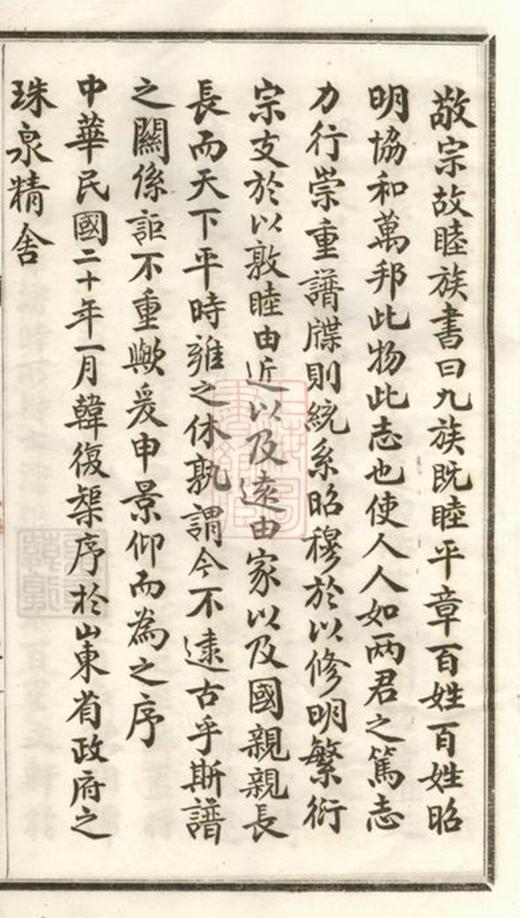 敬宗故睦族書曰九族既睦平章百姓百姓昭
明協和萬邦此物此志也使人人如兩君之篤志
力行崇重譜牒則統系昭穆於以修明繁衍
宗支於以敦睦由近以及遠由家以及國親親長
長而天下平時雍之休孰謂今不逮古乎斯譜
之關係詎不重歟爰申景仰而為之序
中華民國二十年一月韓復榘序於山東省政府之
珠泉精舍